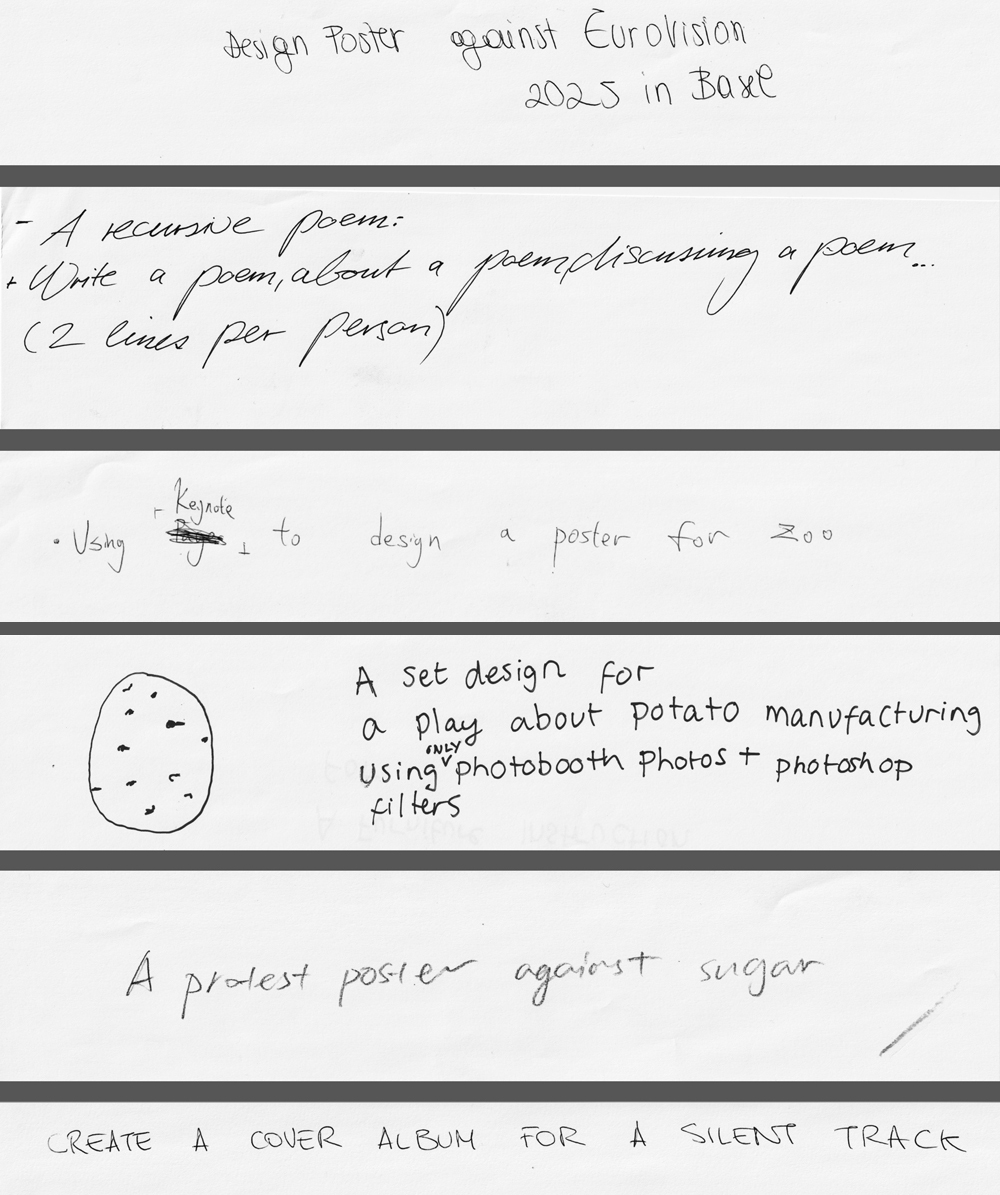 Design Poster against Eurovision
2025 in Basel
- A recursive poem:
+ Write a poem, about a poem, discussing a poem...
(2 lines per person)
• Using Keynote to design a poster for Zoo
A set design for
a play about potato manufacturing
using ONLY photobooth photos + photoshop
filters
A protest poster against sugar
CREATE A COVER ALBUM FOR A SILENT TRACK